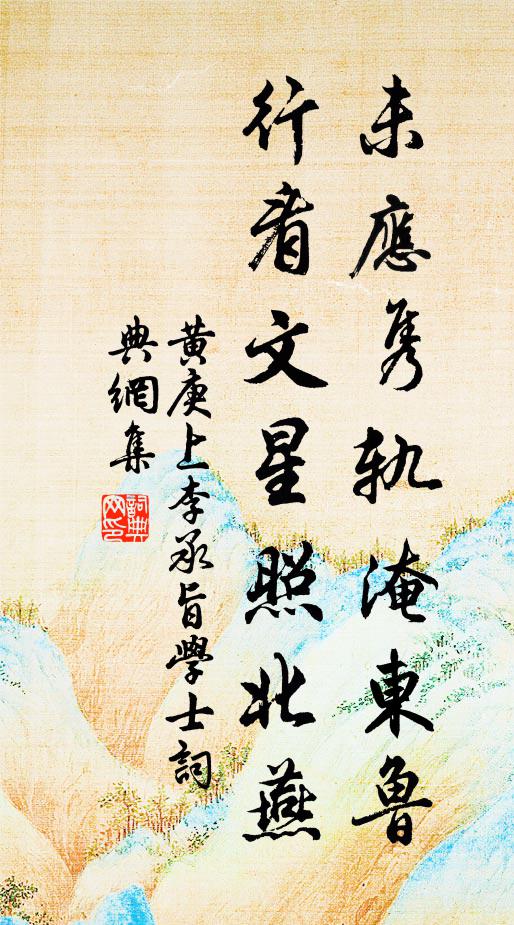 未應隽軌淹東魯
行看文星照北燕
黄庚上李承旨學士詞
典網集
詞典網印